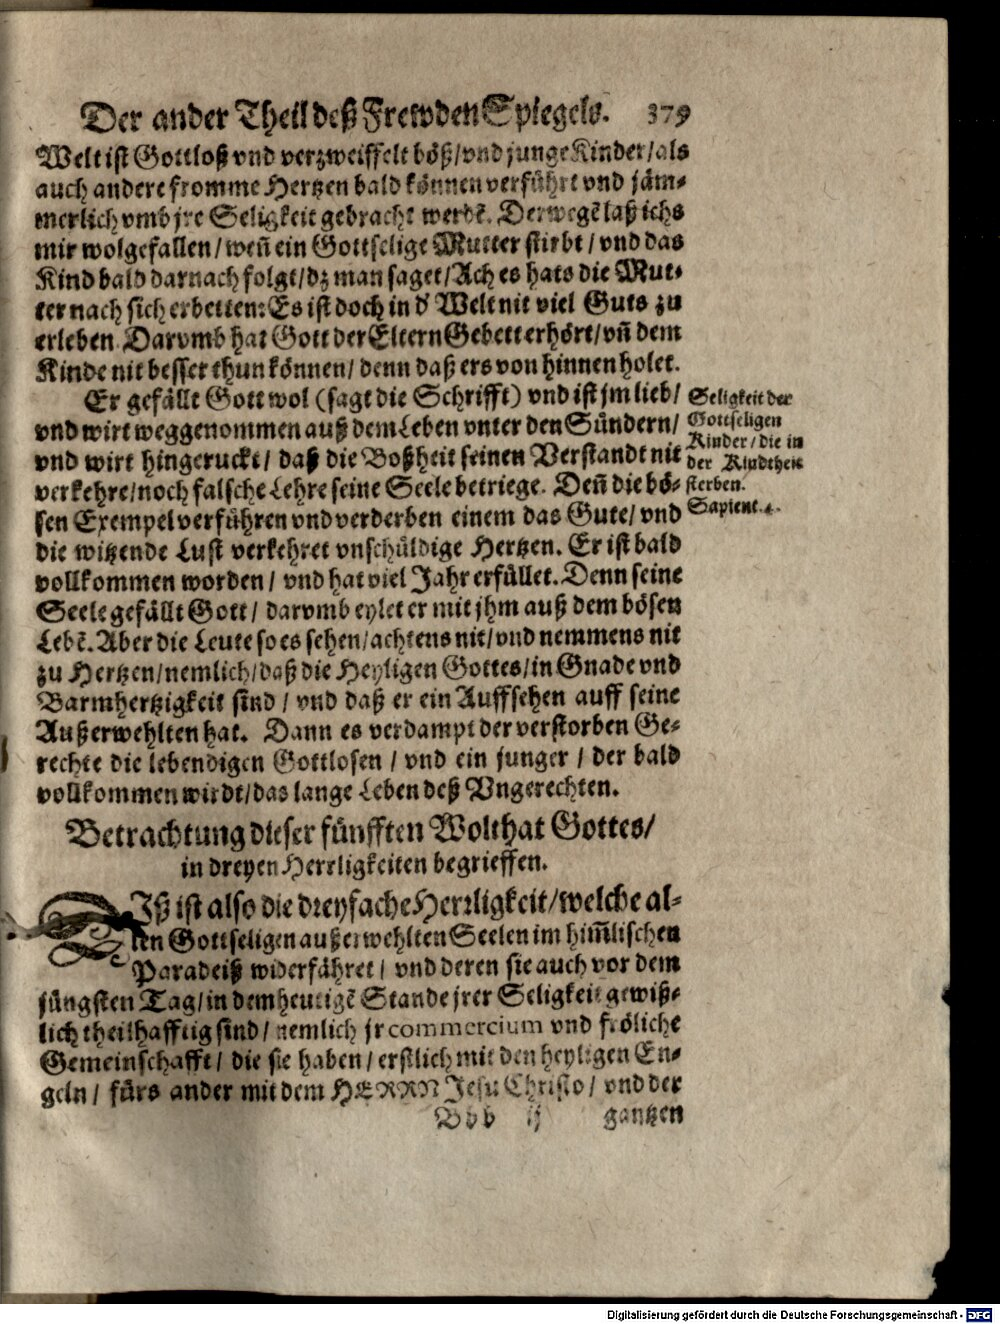 Der ander Theil deß Frewden Spiegels. 379
Welt ist Gottloß vnd verzweiffelt böß/vnd junge Kinder/als
auch andere fromme Hertzen bald können verführt vnd jäm-
merlich vmb jre Seligkeit gebracht werdẽ. Derwegẽ laß ichs
mir wolgefallen/weñ ein Gottselige Mutter stirbt/vnd das
Kind bald darnach folgt/dz man saget/Ach es hats die Mut-
ter nach sich erbetten: Es ist doch in d' Welt nit viel Guts zu
erleben Darvmb hat Gott der Eltern Gebett erhört/vñ dem
Kinde nit besser thun können/denn daß ers von hinnen holet.
Er gefällt Gott wol (sagt die Schrifft) vnd ist jm lieb/
vnd wirt weggenommen auß dem Leben vnter den Sündern/
vnd wirt hingeruckt/daß die Boßheit seinen Verstandt nit
verkehre/noch falsche Lehre seine Seele betriege. Deñ die bö-
sen Exempel verführen vnd verderben einem das Gute/vnd
die witzende Lust verkehret vnschüldige Hertzen. Er ist bald
vollkommen worden/vnd hat viel Jahr erfüllet. Denn seine
Seele gefällt Gott/darvmb eylet er mit jhm auß dem bösen
Lebẽ. Aber die Leute so es sehen/achtens nit/vnd nemmens nit
zu Hertzen/nemlich/daß die Heyligen Gottes/in Gnade vnd
Barmhertzigkeit sind/vnd daß er ein Auffsehen auff seine
Außerwehlten hat. Dann es verdampt der verstorben Ge-
rechte die lebendigen Gottlosen/vnd ein junger/der bald
vollkommen wirdt/das lange Leben deß Vngerechten.
Seligkeit der
Gottseligen
Kinder/die in
der Kindtheit
sterben.
Sapient. 4.
Betrachtung dieser fünfften Wolthat Gottes/
in dreyen Herrligkeiten begrieffen.
DIß ist also die dreyfache Herrligkeit/welche al-
len Gottseligen außerwehlten Seelen im him̃lischen
Paradeiß widerfähret/vnd deren sie auch vor dem
jüngsten Tag/in dem heutigẽ Stande jrer Seligkeit gewiß-
lich theilhafftig sind/nemlich jr commercium vnd fröliche
Gemeinschafft/die sie haben/erstlich mit den heyligen En-
geln/fürs ander mit dem HERRN Jesu Christo/vnd der
Bbb ij gantzen
Digitalisierung gefördert durch die Deutsche Forschungsgemeinschaft - DFG